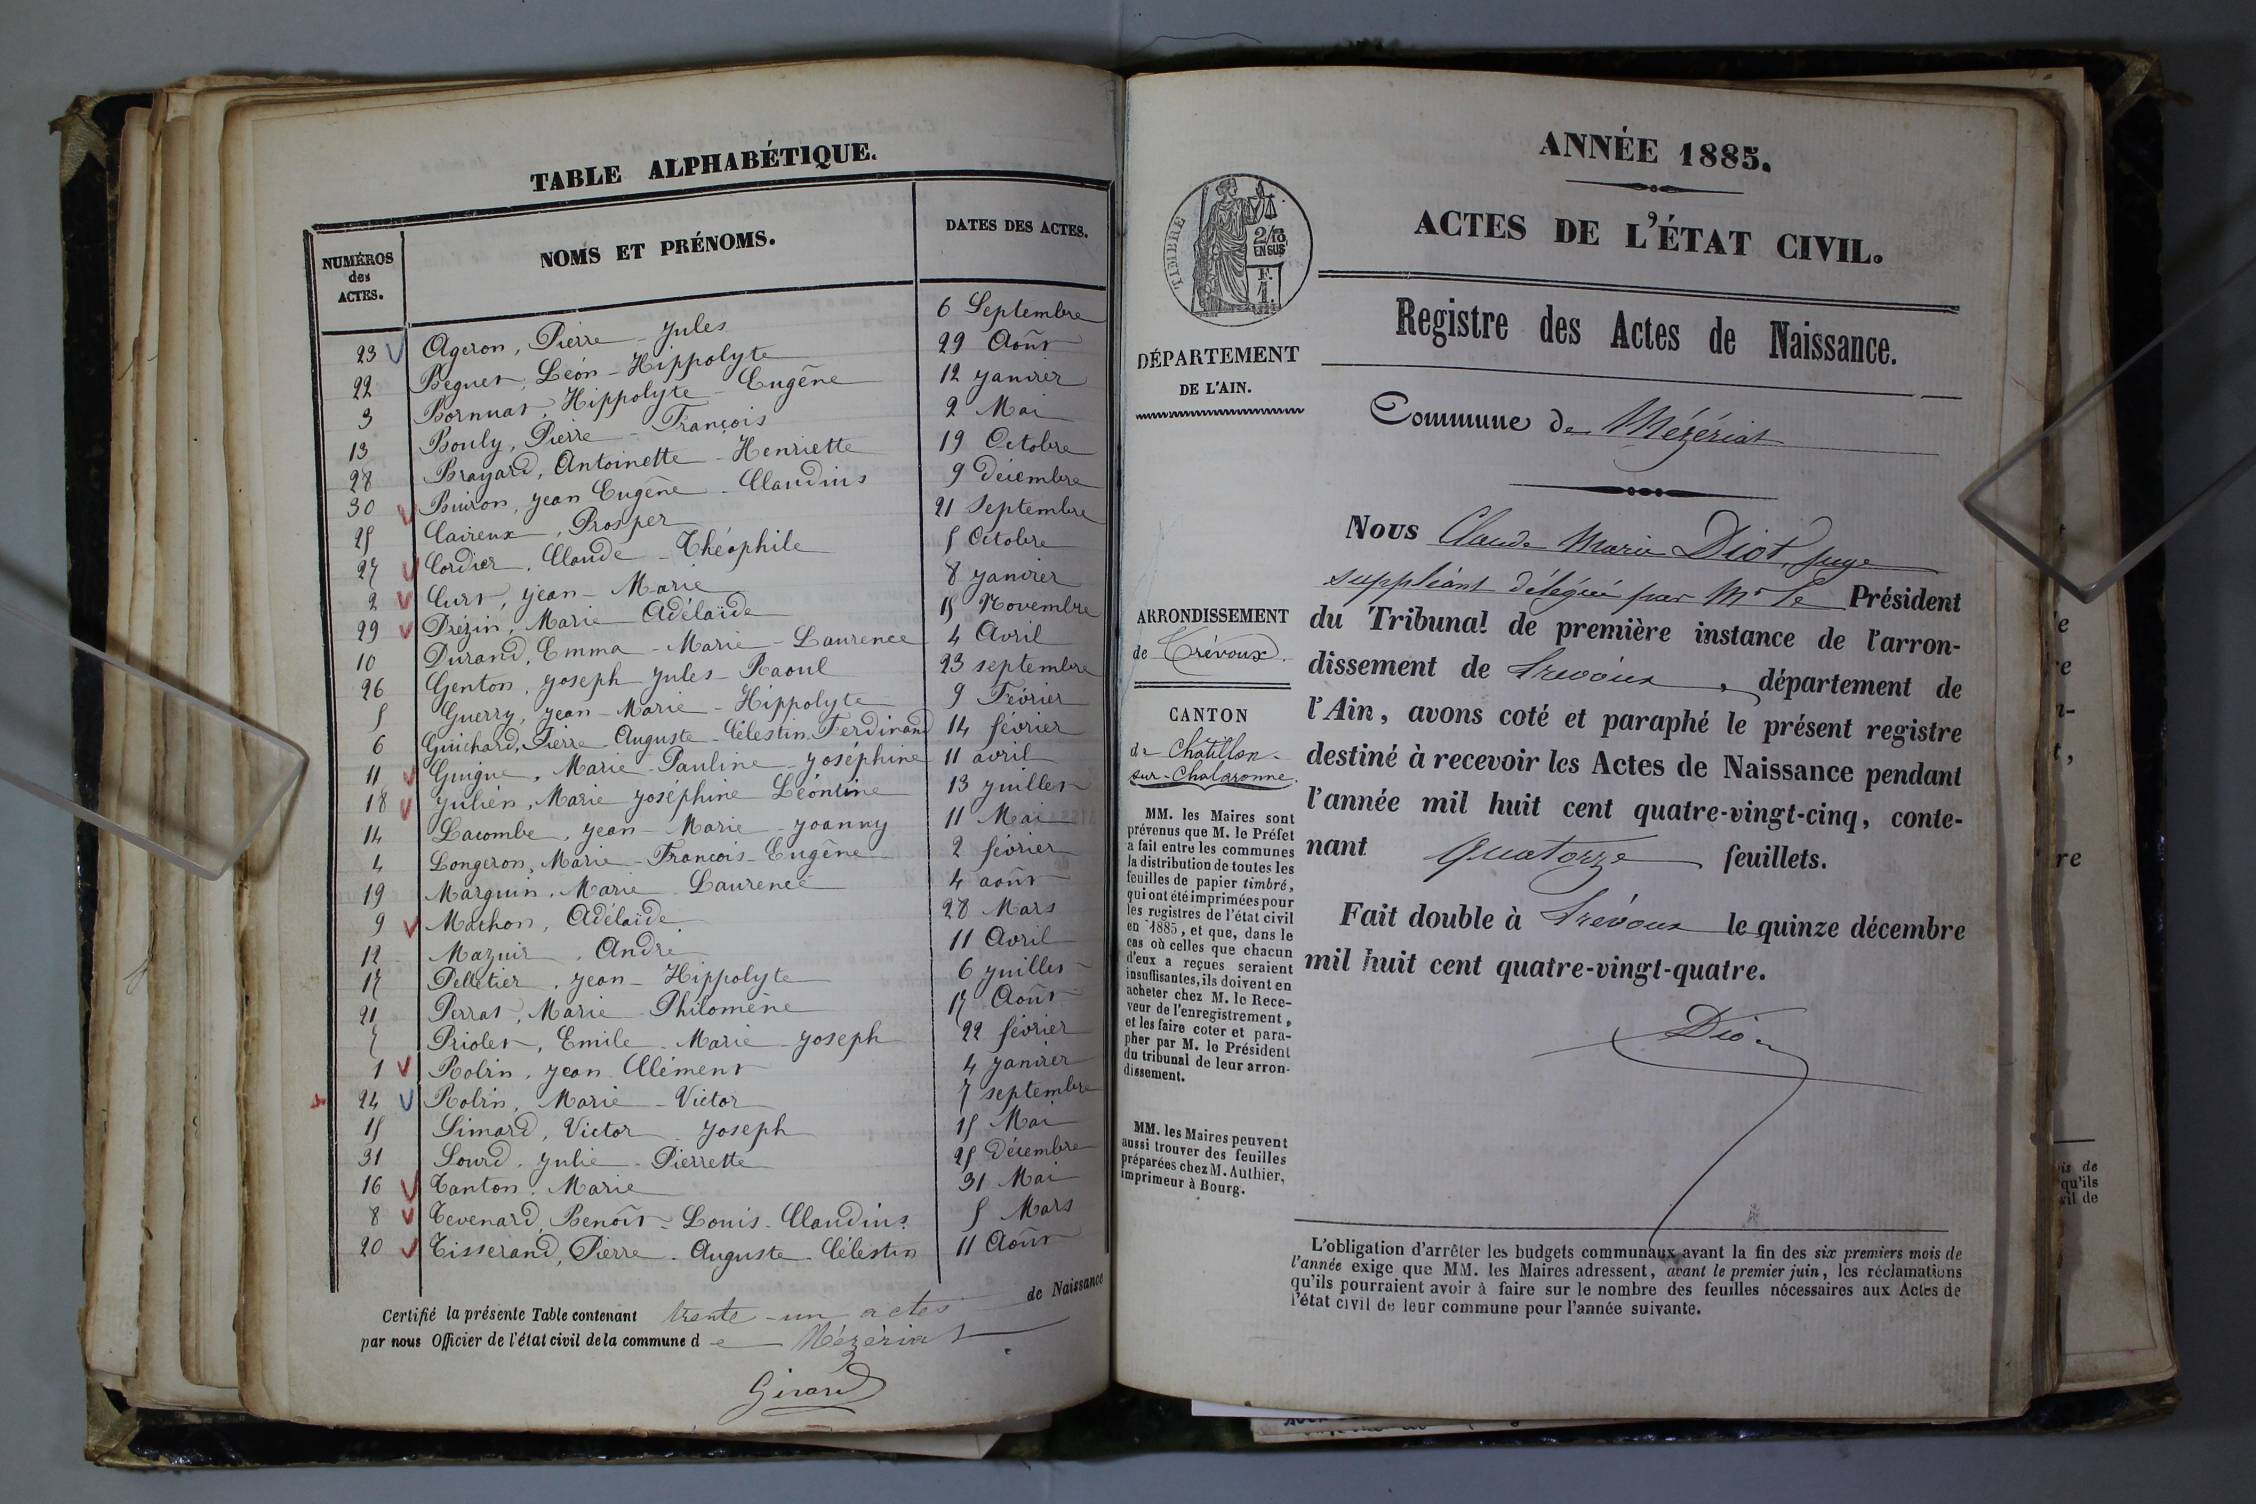 TABLE ALPHABÉTIQUE.
NUMÉROS des ACTES.
NOMS ET PRÉNOMS.
DATES DES ACTES.
23 Ageron, Pierre - Jules 6 Septembre
22 Beguet, Léon - Hippolyte 29 Août
3 Bornuat, Hippolyte - Eugène 12 Janvier
13 Bouly, Pierre - François 2 Mai
28 Brayard, Antoinette - Henriette 19 Octobre
30 Buiron, Jean Eugène - Claudius 9 décembre
25 Claireux, Prosper 21 septembre
27 Cordier, Claude - Théophile 5 Octobre
2 Curt, Jean - Marie 8 Janvier
29 Drézin, Marie Adélaïde 15 Novembre
10 Durand, Emma - Marie - Laurence 4 Avril
26 Genton, Joseph Jules - Raoul 23 septembre
5 Guerry, Jean - Marie - Hippolyte 9 Février
6 Guichard, Pierre - Auguste - Célestin Ferdinand 14 février
11 Guigue, Marie - Pauline - Joséphine 11 avril
18 Julien, Marie Joséphine Léontine 13 Juillet
14 Lacombe, Jean - Marie - Joanny 11 Mai
4 Longeron, Marie - François - Eugène 2 février
19 Marguin, Marie Laurence 4 août
9 Mathon, Adélaïde 28 Mars
12 Mazuir, André 11 Avril
17 Pelletier, Jean - Hippolyte 6 Juillet
21 Perrat, Marie Philomène 17 Août
7 Priolet, Emile - Marie - Joseph 22 février
1 Robin, Jean Clément 4 Janvier
24 Robin, Marie - Victor 7 septembre
15 Simard, Victor Joseph 15 Mai
31 Sourd, Julie - Pierrette 25 Décembre
16 Tanton, Marie 31 Mai
8 Tevenard, Benoît - Louis - Claudius 5 Mars
20 Tisserand, Pierre - Auguste - Célestin 11 Août
Certifié la présente Table contenant trente - un actes de Naissance
par nous Officier de l'état civil de la commune de Mézériat
Girard
ANNÉE 1885.
ACTES DE L'ÉTAT CIVIL.
TIMBRE
2/10
EN SUS
F.
1.
Registre des Actes de Naissance.
DÉPARTEMENT
DE L'AIN.
Commune de Mézériat
Nous Claude Marie Diot, juge
suppléant délégué par Mr le Président
du Tribunal de première instance de l'arron-
dissement de Trevoux, département de
l'Ain, avons coté et paraphé le présent registre
destiné à recevoir les Actes de Naissance pendant
l'année mil huit cent quatre-vingt-cinq, conte-
nant quatorze feuillets.
Fait double à Trévoux le quinze décembre
mil huit cent quatre-vingt-quatre.
Diot
ARRONDISSEMENT
de Trévoux.
CANTON
de Chatillon-
sur-Chalaronne.
MM. les Maires sont
prévenus que M. le Préfet
a fait entre les communes
la distribution de toutes les
feuilles de papier timbré,
qui ont été imprimées pour
les registres de l'état civil
en 1885, et que, dans le
cas où celles que chacun
d'eux a reçues seraient
insuffisantes, ils doivent en
acheter chez M. le Rece-
veur de l'enregistrement,
et les faire coter et para-
pher par M. le Président
du tribunal de leur arron-
dissement.
MM. les Maires peuvent
aussi trouver des feuilles
préparées chez M. Authier,
imprimeur à Bourg.
L'obligation d'arrêter les budgets communaux avant la fin des six premiers mois de
l'année exige que MM. les Maires adressent, avant le premier juin, les réclamations
qu'ils pourraient avoir à faire sur le nombre des feuilles nécessaires aux Actes de
l'état civil de leur commune pour l'année suivante.